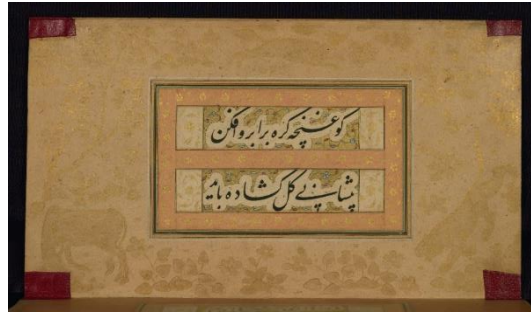 کو غنچه گره بر ابرو افکن
پیشانی گل گشاده باید